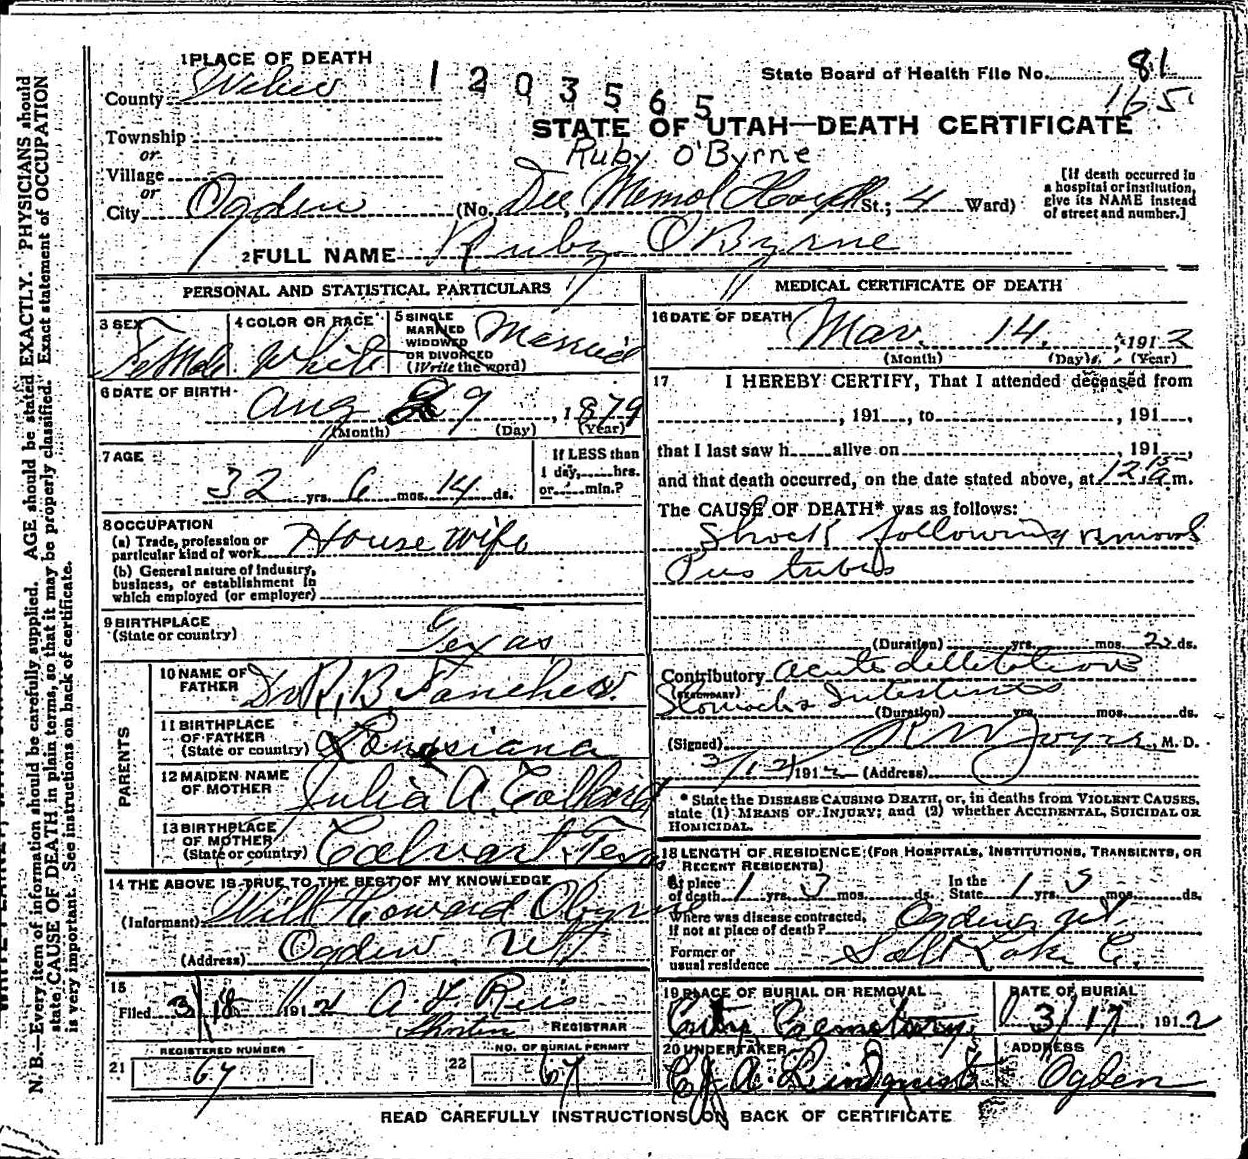 1 PLACE OF DEATH
County Weber
1203565
State Board of Health File No. 81
165
Township
or
Village
or
City Ogden
STATE OF UTAH—DEATH CERTIFICATE
Ruby O'Byrne
(No. Dee Memol Hospt St.; 4 Ward)
[If death occurred in a hospital or institution, give its NAME instead of street and number.]
2 FULL NAME Ruby O Byrne
PERSONAL AND STATISTICAL PARTICULARS
3 SEX Female
4 COLOR OR RACE White
5 SINGLE MARRIED WIDOWED OR DIVORCED (Write the word) Married
6 DATE OF BIRTH Aug 29, 1879
(Month) (Day) (Year)
7 AGE 32 yrs. 6 mos. 14 ds.
If LESS than 1 day, hrs. or min.?
8 OCCUPATION
(a) Trade, profession or particular kind of work House wife
(b) General nature of Industry, business, or establishment in which employed (or employer)
9 BIRTHPLACE (State or country) Texas
PARENTS
10 NAME OF FATHER Dr R. B. Sanches
11 BIRTHPLACE OF FATHER (State or country) Louisiana
12 MAIDEN NAME OF MOTHER Julia A.
13 BIRTHPLACE OF MOTHER (State or country) Calvart Texas
14 THE ABOVE IS TRUE TO THE BEST OF MY KNOWLEDGE
(Informant) Will Howard Obyrne
(Address) Ogden Ut
15 Filed 3/18 1912 A. F. REGISTRAR
21 REGISTERED NUMBER 67
22 NO. OF BURIAL PERMIT 67
MEDICAL CERTIFICATE OF DEATH
16 DATE OF DEATH Mar. 14, 1912
(Month) (Day) (Year)
17 I HEREBY CERTIFY, That I attended deceased from
, 191 , to , 191 ,
that I last saw h alive on , 191 ,
and that death occurred, on the date stated above, at 12 m.
The CAUSE OF DEATH* was as follows:
Shock following removal
Pus tubes
(Duration) yrs. mos. 2 ds.
Contributory acute dilitation
(SECONDARY) Stomach & Intestines
(Duration) yrs. mos. ds.
(Signed) M. D.
3/ 1912 (Address)
* State the DISEASE CAUSING DEATH, or, in deaths from VIOLENT CAUSES, state (1) MEANS OF INJURY; and (2) whether ACCIDENTAL, SUICIDAL OR HOMICIDAL.
18 LENGTH OF RESIDENCE (FOR HOSPITALS, INSTITUTIONS, TRANSIENTS, OR RECENT RESIDENTS)
At place of death 1 yrs. 3 mos. ds. In the State 1 yrs. mos. ds.
Where was disease contracted, if not at place of death? Ogden, Ut
Former or usual residence Salt Lake C.
19 PLACE OF BURIAL OR REMOVAL City Cemetery
DATE OF BURIAL 3/17, 1912
20 UNDERTAKER A. Lindquist
ADDRESS Ogden
READ CAREFULLY INSTRUCTIONS ON BACK OF CERTIFICATE
N. B.—Every item of information should be carefully supplied. AGE should be stated EXACTLY. PHYSICIANS should
state CAUSE OF DEATH in plain terms, so that it may be properly classified. Exact statement of OCCUPATION
is very important. See instructions on back of certificate.